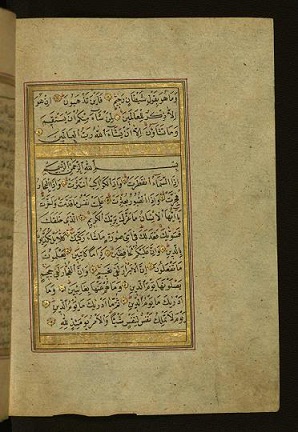 وما هو بقول شيطان رجيم فاين تذهبون ان هو
الا ذكر للعالمين لمن شاء منكم ان يستقيم
وما تشاؤن الا ان يشاء الله رب العالمين
بسم الله الرحمن الرحيم
اذا السماء انفطرت واذا الكواكب انتثرت واذا البحار
فجرت واذا القبور بعثرت علمت نفس ما قدمت واخرت
يا ايها الانسان ما غرك بربك الكريم الذي خلقك
فسويك فعدلك في اي صورة ما شاء ركبك كلا بل تكذبون
بالدين وان عليكم لحافظين كراما كاتبين يعلمون
ما تفعلون ان الابرار لفي نعيم وان الفجار لفي جحيم
يصلونها يوم الدين وما هم عنها بغائبين وما
ادريك ما يوم الدين ثم ما ادريك ما يوم الدين
يوم لا تملك نفس لنفس شيئا والامر يومئذ لله